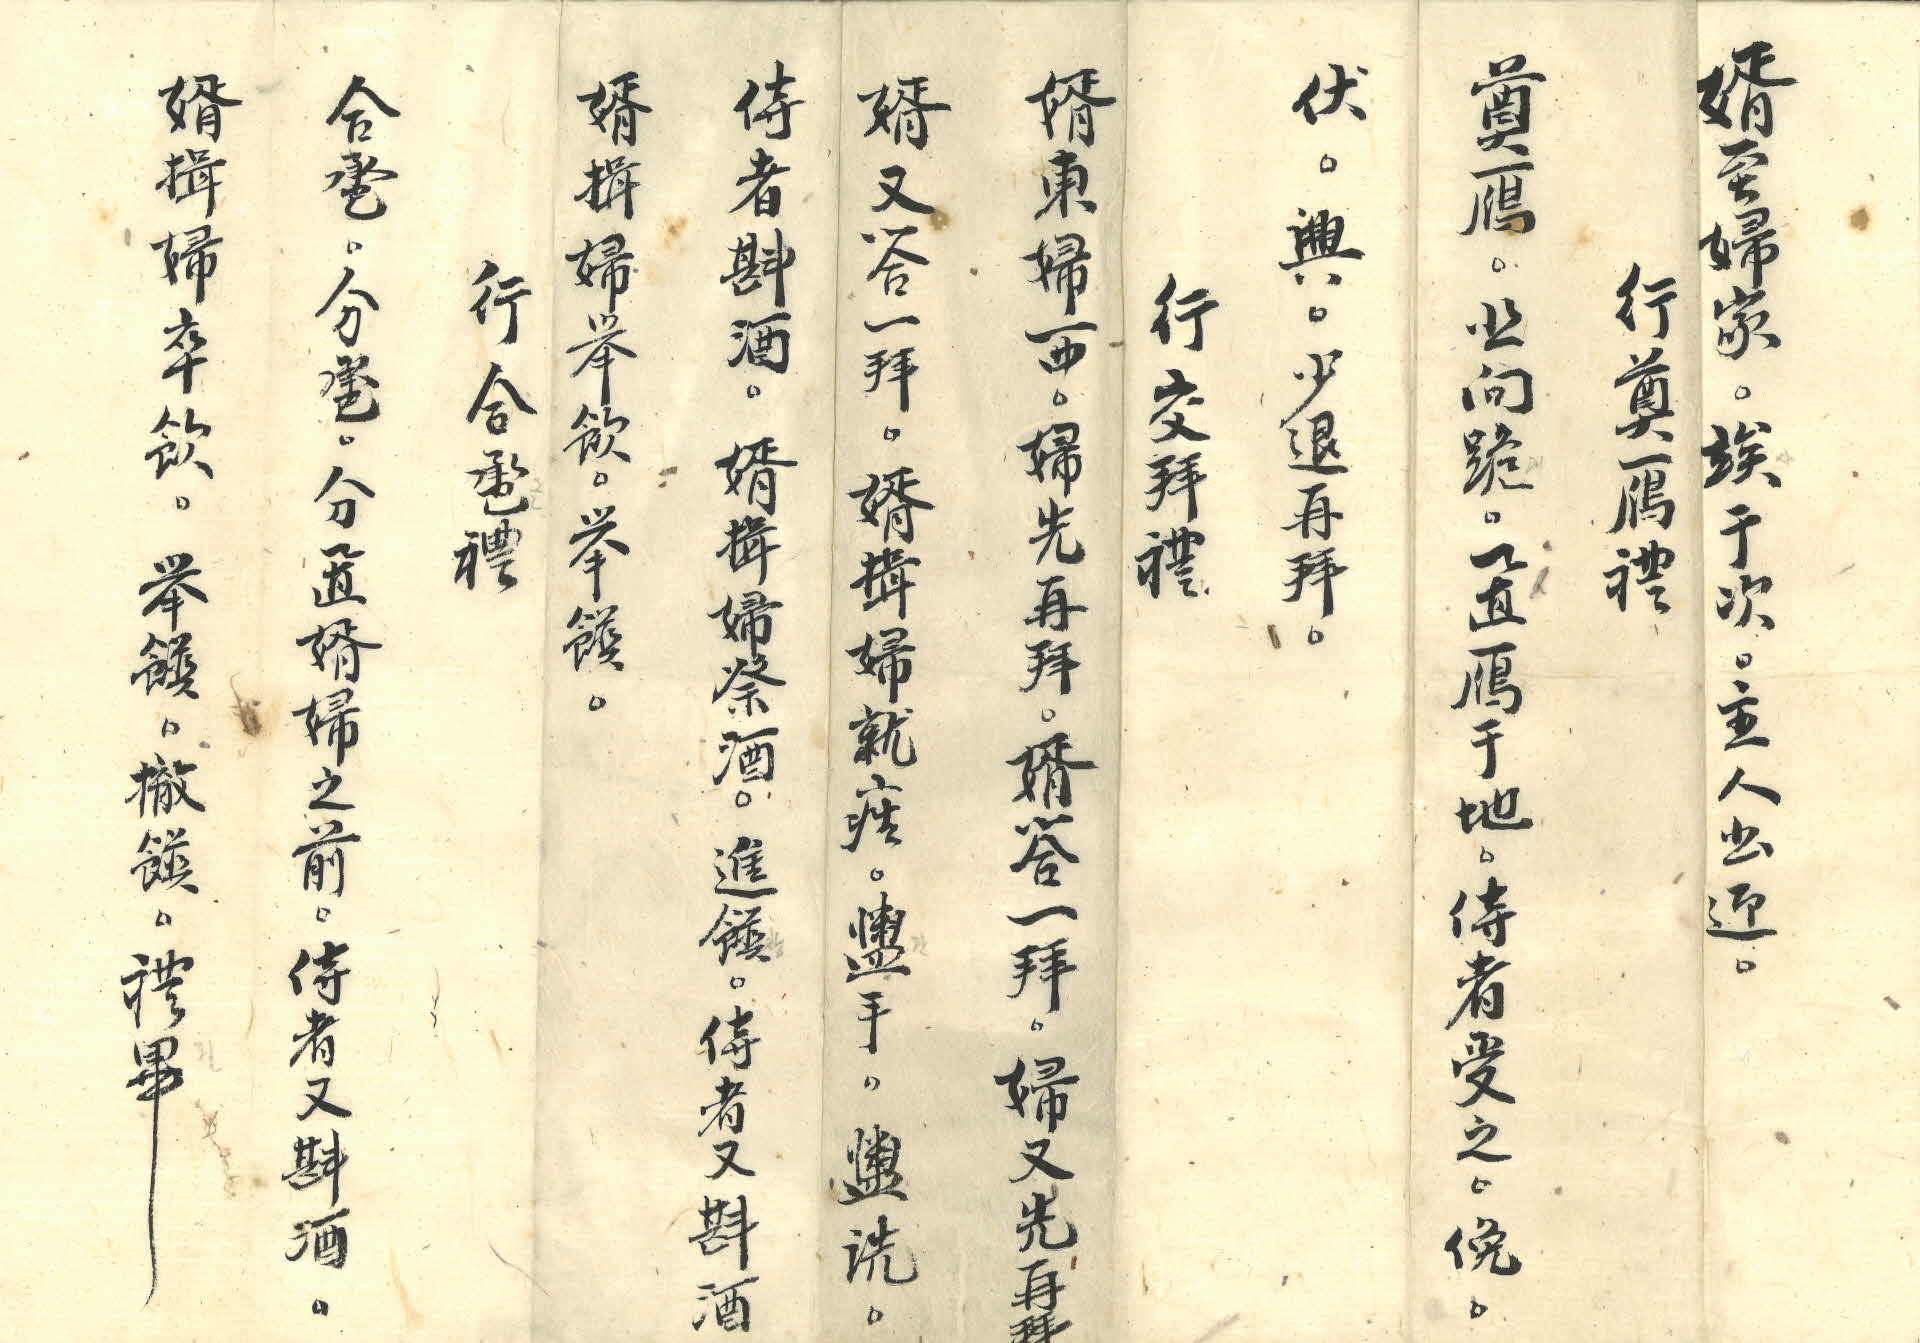 婿至婦家。竢于次。主人出迎。
行奠鴈禮
奠鴈。北向跪。置鴈于地。侍者受之。俛。
伏。興。少退再拜。
行交拜禮
婿東婦西。婦先再拜。婿答一拜。婦又先再拜
婿又答一拜。婿揖婦就座。盥手。盥洗。
侍者斟酒。婿揖婦祭酒。進饌。侍者又斟酒
婿揖婦举飲。举饌。
行合巹禮
合巹。分巹。分置婿婦之前。侍者又斟酒。
婿揖婦卒飲。举饌。撤饌。禮畢